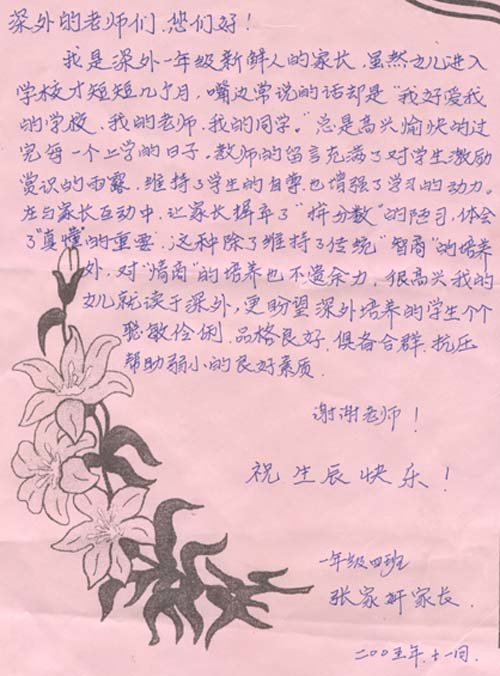 深外的老师们,您们好!
我是深外一年级新鲜人的家长,虽然女儿进入
学校才短短几个月,嘴边常说的话却是“我好爱我
的学校、我的老师、我的同学。”总是高兴愉快的过
完每一个上学的日子。教师的留言充满了对学生激励
赏识的雨露,维持了学生的自尊,也增强了学习的动力。
在与家长互动中,让家长摒弃了“拼分数”的陋习,体会
了“真懂”的重要,这种除了维持了传统“智商”的培养
外,对“情商”的培养也不遗余力,很高兴我的
女儿就读于深外,更盼望深外培养的学生个个
聪敏伶俐、品格良好、俱备合群、抗压
帮助弱小的良好素质.
谢谢老师!
祝生辰快乐!
一年级四班
张家妍家长.
二00五年.十一回.